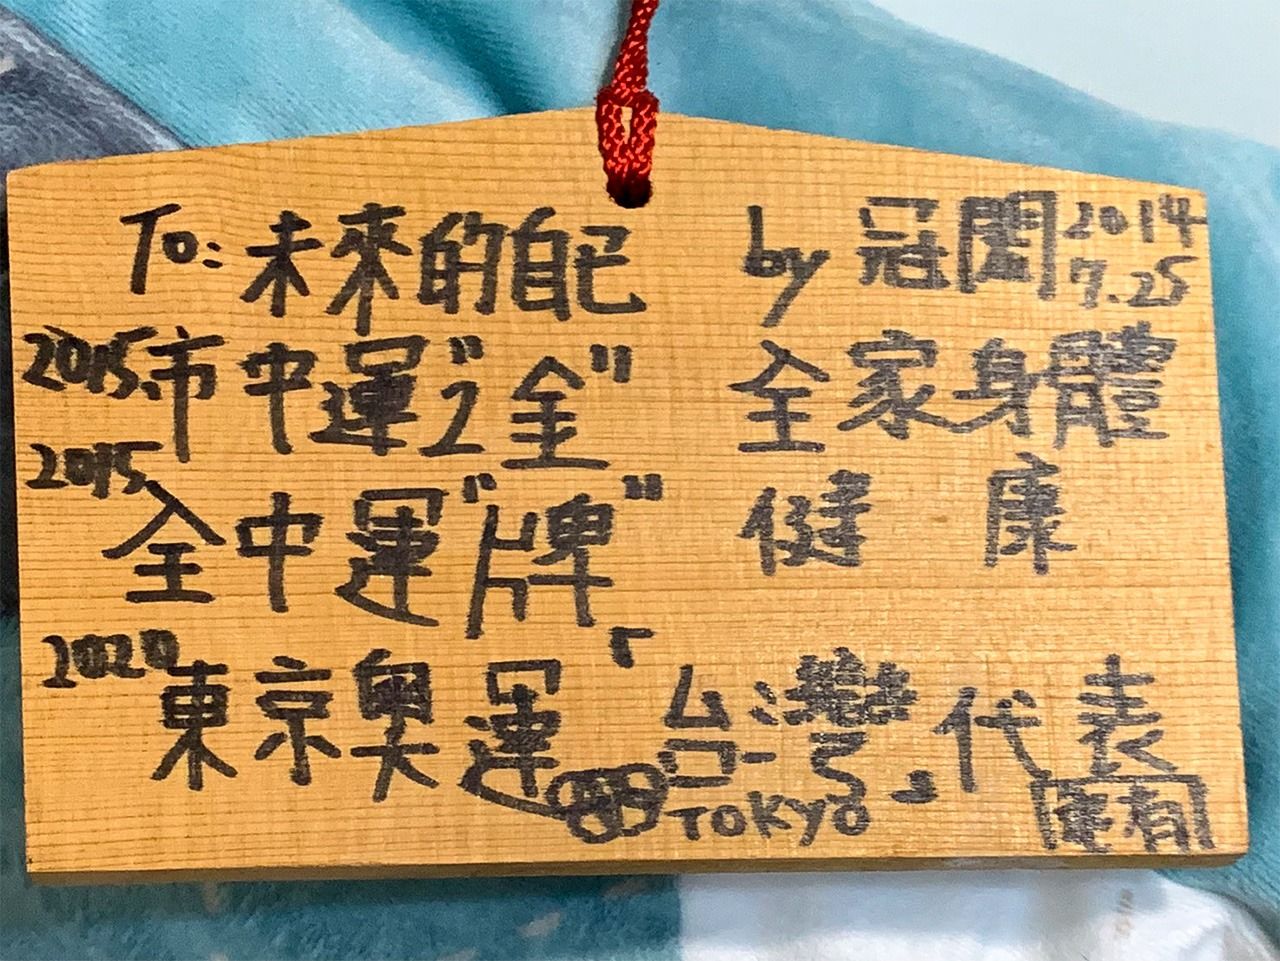 To: 未來的自己 by 冠閎 2014 7.25
2015.市中運"2金" 全家身體
2015 全中運"牌" 健康
2020 東京奧運「台灣」代表
TOKYO